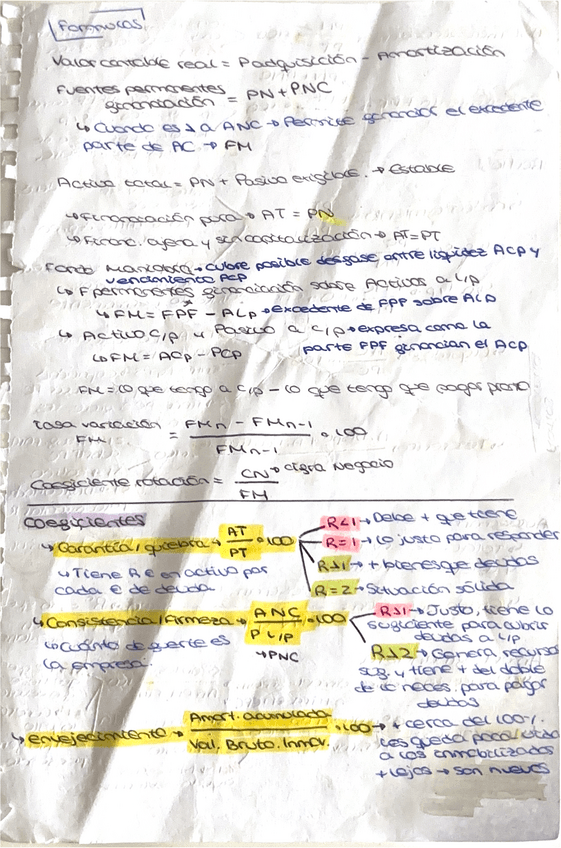 Fórmulas
Valor contable real = P adquisición - Amortización
Fuentes permanentes
financiación = PN + PNC
↳ Cuando es > a ANC → Permite financiar el excedente
parte de AC → FM
Activo total = PN + Pasivo exigible. → Estable
↳ Financiación pura → AT = PN
↳ Financ. ajena y sin capitalización → AT = PT
Fondo Maniobra → cubre posible desfase entre liquidez ACp y
vencimiento PCP
↳ F permanentes financiación sobre Activos a L/p
↳ FM = FPF - ALp → excedente de FPF sobre ALp
↳ Activo C/p y Pasivo a c/p → expresa como la
↳ FM = ACp - PCp parte FPF financian el ACp
FM = lo que tengo a c/p - lo que tengo que pagar pronto
Tasa variación
FM = FMn - FMn-1 / FMn-1 · 100
Coeficiente rotación = CN / FM → cifra Negocio
Coeficientes
↳ Garantía / quiebra → AT / PT · 100
R<1 → Debe + que tiene
R=1 → lo justo para responder
R>1 → + bienes que deudas
R=2 → Situación sólida
↳ Tiene R € en activo por
cada € de deuda
↳ Consistencia / Firmeza → ANC / P L/P · 100
→ PNC
↳ Cuánto de fuerte es
la empresa.
R>1 → Justo, tiene lo
suficiente para cubrir
deudas a L/P
R>2 → Genera recursos
suf. y tiene + del doble
de lo neces. para pagar
deudas
↳ envejecimiento → Amort. acumulada / Val. Bruto. Inmov. · 100 → + cerca del 100%
les queda poca
a los inmovilizados
+ lejos → son nuevos